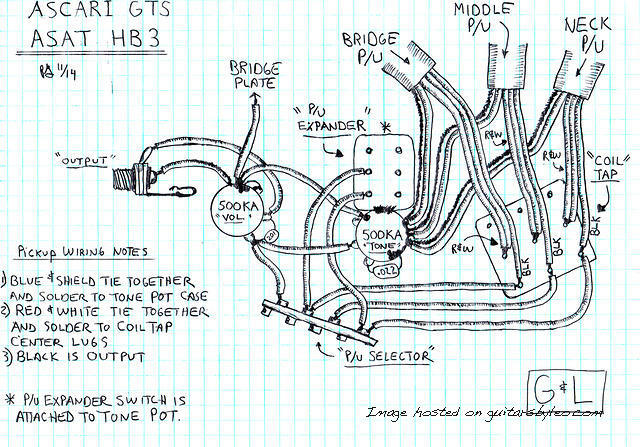 ASCARI GTS
ASAT HB3
11/14
MIDDLE
P/U
NECK
P/U
BRIDGE
P/U
BRIDGE
PLATE
"P/U
EXPANDER" *
"OUTPUT"
R&W
R&W
"COIL
TAP"
500KA
"VOL."
500KA
"TONE"
R&W
.022
BLK
BLK
BLK
PICKUP WIRING NOTES
1) BLUE & SHIELD TIE TOGETHER
AND SOLDER TO TONE POT CASE
2) RED & WHITE TIE TOGETHER
AND SOLDER TO COIL TAP
CENTER LUGS
3) BLACK IS OUTPUT
"P/U SELECTOR"
* P/U EXPANDER SWITCH IS
ATTACHED TO TONE POT.
G&L
Image hosted on guitarsbyleo.com